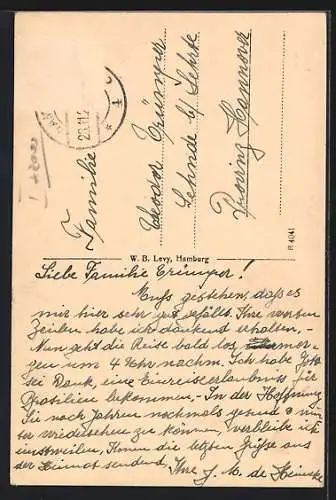 Familie
Teodor Crümper
Sehnde b/ Lehrte
Provinz Hannover
23.11.2
R 4041
W. B. Levy, Hamburg
Liebe Familie Crümper!
Muss gestehen, daß es
mir hier sehr gut gefällt. Ihre werten
Zeilen habe ich dankend erhalten. -
Nun geht die Reise bald los mor-
gen um 4 Uhr nachm. Ich habe Gott
sei Dank, eine Einreiseerlaubniss für
Brasilien bekommen. - In der Hoffnung
Sie nach Jahren nochmals gesund &
wiedersehen zu können, verbleibe ich
einstweilen, Ihnen die letzten Grüße aus
der Heimat sendend, Ihre J. M. de